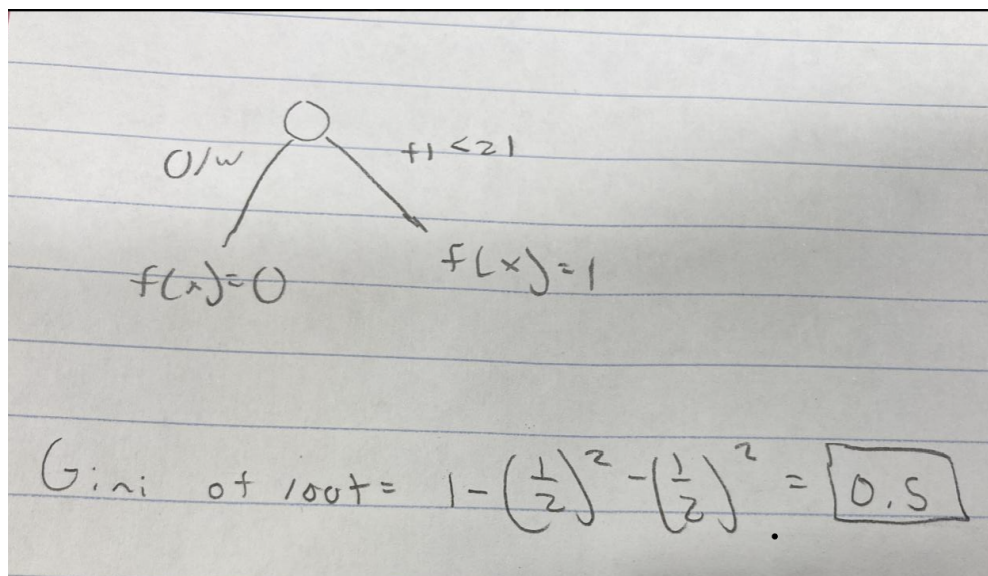 O/w
f1 < 21
f(x)=0
f(x)=1
Gini of root = 1-(1/2)^2-(1/2)^2 = 0.5